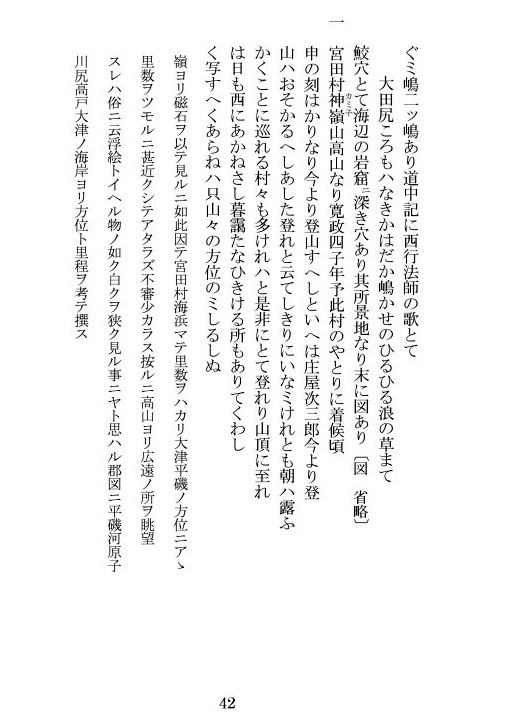 ぐミ嶋二ッ嶋あり道中記に西行法師の歌とて
大田尻ころもハなきかはだか嶋かせのひるひる浪の草まて
鮫穴とて海辺の岩窟ニ深き穴あり其所景地なり末に図あり〔図　省略〕
一　宮田村神嶺山高山なり寛政四子年予此村のやとりに着候頃
申の刻はかりなり今より登山すへしといへは庄屋次三郎今より登
山ハおそかるへしあした登れと云てしきりにいなミけれとも朝ハ露ふ
かくことに巡れる村々も多けれハと是非にとて登れり山頂に至れ
は日も西にあかねさし暮靄たなひきける所もありてくわし
く写すへくあらねハ只山々の方位のミしるしぬ
嶺ヨリ磁石ヲ以テ見ルニ如此因テ宮田村海浜マテ里数ヲハカリ大津平磯ノ方位ニアヽ
里数ヲツモルニ甚近クシテアタラズ不審少カラス按ルニ高山ヨリ広遠ノ所ヲ眺望
スレハ俗ニ云浮絵トイヘル物ノ如ク白クヲ狭ク見ル事ニヤト思ハル郡図ニ平磯河原子
川尻高戸大津ノ海岸ヨリ方位ト里程ヲ考テ撰ス
42